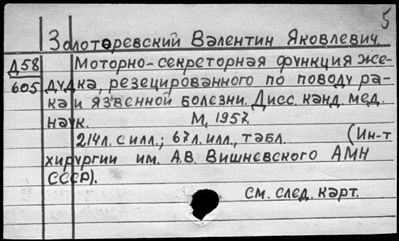 5
Золотаревский Валентин Яковлевич.
Д58 Моторно-секреторная функция же-
605 лудка, резецированного по поводу ра-
ка и язвенной болезни. Дисс. канд. мед.
наук. М, 1957.
214л. с илл.; 67л. илл., табл. (Ин-т
хирургии им. А.В. Вишневского АМН
СССР).
см. след. карт.